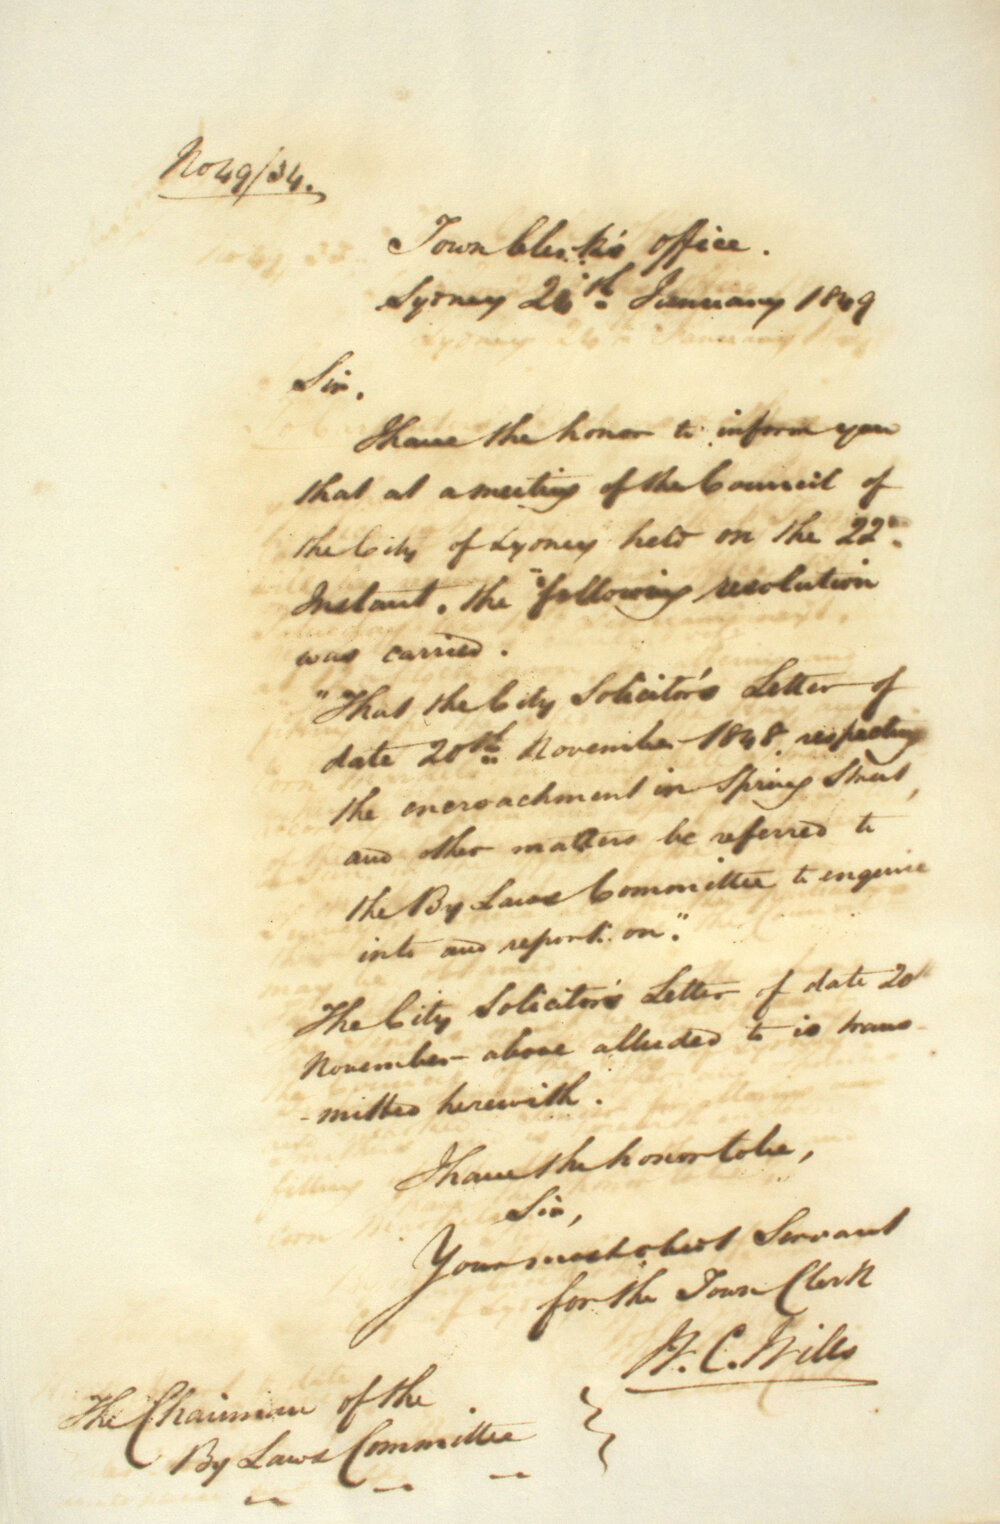 No 49/34.
Town Clerk's office.
Sydney 24th January 1849
Sir,
I have the honor to inform you
that at a meeting of the Council of
the City of Sydney held on the 22d.
Instant, the following resolution
was carried.
"That the City Solicitor's Letter of
date 20th November 1848 respecting
the encroachment in Spring Street,
and other matters be referred to
the By Laws Committee to enquire
into and report on".
The City Solicitor's Letter of date 20
November above alluded to is trans
-mitted herewith.
I have the honor to be,
Sir,
Your most obedt Servant
for the Town Clerk
W. C. Wills
The Chairman of the
By Laws Committee